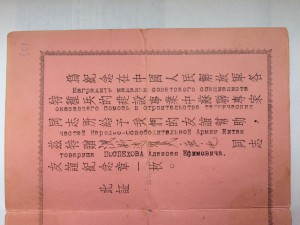 為紀念在中國人民解放軍各
Наградить медалью советского специалиста
特種兵的建設事業中蘇聯專家
оказавшего помощь в строительстве технических
同志所給予我們的友誼幫助，
частей Народно-освободительной Армии Китая
茲特贈 同志
товарища ПОСПЕХОВА Ефимовича.
友誼紀念章一枚。
此証